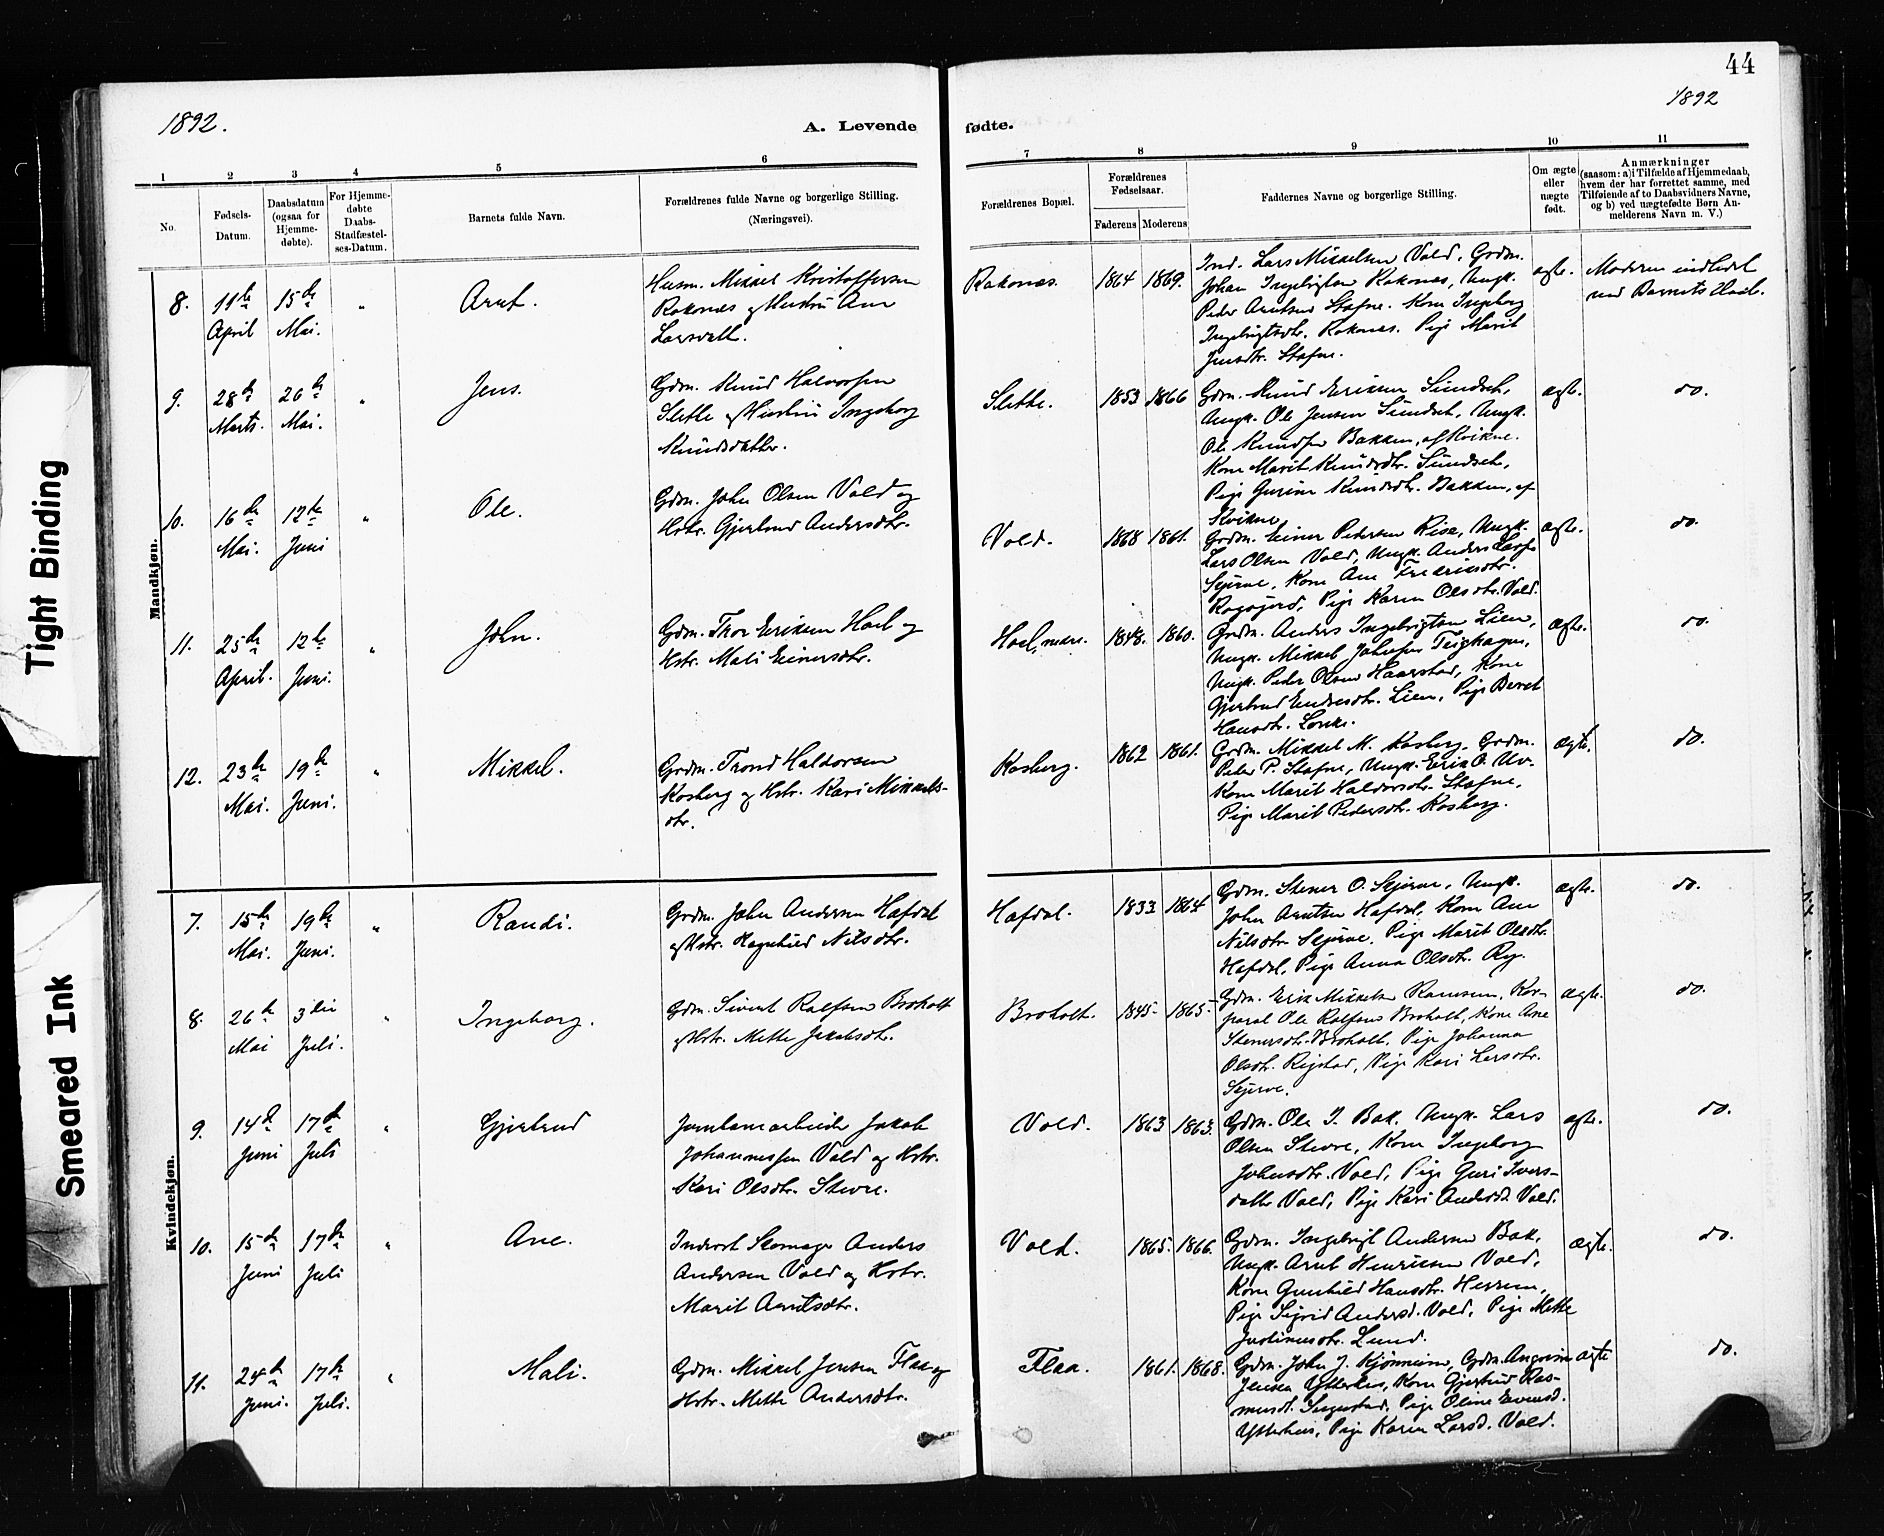 44
1892.
1892
A. Levende fødte.
1 2 3 4 5 6 7 8 9 10 11
No.
Fødsels-
Datum.
Daabsdatum
(ogsaa for
Hjemme-
døbte).
For Hjemme-
døbte
Daabs-
Stadfæstel-
ses-Datum.
Barnets fulde Navn.
Forældrenes fulde Navne og borgerlige Stilling.
(Næringsvei).
Forældrenes Bopæl.
Forældrenes
Fødselsaar.
Faderens Moderens
Faddernes Navne og borgerlige Stilling.
Om ægte
eller
uægte
født.
Anmærkninger
(saasom: a) i Tilfælde af Hjemmedaab,
hvem der har forrettet samme, med
Tilføiende af to Daabsvidners Navne,
og b) ved uægtefødte Børn An-
melderens Navn m. V.)
Mandkjøn.
8.
11te
April
15de
Mai.
"
Arnt.
Husm. Mikkel Kristoffersen
Rokones og Hustru Ane
Larsdatt.
Rokones.
1864
1869.
Ind. Lars Mikkelsen Vold, Grdm.
Johan Ingebrigtsen Rokones, Ungk.
Peder Arntsen Stafne. Kone Ingeborg
Ingebrigtsdtr. Rokones. Pige Marit
Jensdtr. Stafne.
ægte.
Moderen indledet
med Barnets Daab.
9.
28de
Marts.
26de
Mai.
"
Jens.
Gdm. Knud Halvorsen
Slette og Hustru Ingeborg
Knudsdatter.
Slette.
1853
1866
Gdm. Knud Eriksen Sundset,
Ungk. Ole Jensen Sundset, Ungk.
Ole Knudsen Bakken, af Kvikne.
Kone Marit Knudsdtr. Sundset,
Pige Gurine Knudsdtr. Bakken, af
Kvikne
ægte.
do.
10.
16de
Mai.
12te
Juni
"
Ole.
Gdm. John Olsen Vold og
Hstr. Gjertrud Andersdtr.
Vold.
1868
1861.
Grdm. Einer Pedersen Rise, Ungk.
Lars Olsen Vold, Ungk. Anders Larss.
Skjerve, Kone Ane Fredriksdtr.
Pige Karen Olsdtr. Vold.
ægte.
do.
11.
25de
April.
12te
Juni.
"
John.
Gdm. Thor Eriksen Hoel og
Hstr. Mali Einersdtr.
1848.
1860.
Grdm. Anders Ingebrigtsen Lien,
Ungk. Mikkel Johnsen
Ungk. Peder Olsen Haarstad, Kone
Gjertrud Endresdtr. Lien, Pige Beret
Hansdtr.
ægte.
do.
12.
23de
Mai.
19de
Juni.
"
Mikkel.
Grdm. Trond Haldorsen
Kosberg og Hstr. Kari Mikkels-
dtr.
Kosberg.
1862
1861.
Grdm. Mikkel M. Kosberg. Grdm.
Peder P. Stafne, Ungk. Erik O. Uv.
Kone Marit Haldorsdtr. Stafne,
Pige Marit Pedersdtr. Kosberg.
ægte.
do.
Kvindekjøn.
7.
15de
Mai.
19de
Juni.
"
Randi.
Grdm. John Andersen Hafdal
og Hstr. Ragnhild Nilsdtr.
Hafdal.
1833
1864
Gdm. Stener O. Skjerve, Ungk.
John Arntsen Hafdal, Kone Ane
Nilsdtr. Skjerve. Pige Marit Olsdtr.
Hafdal, Pige Anna Olsdtr. Ry.
ægte.
do.
8.
26de
Mai
3die
Juli.
"
Ingeborg.
Gdm. Sivert Rolfsen Broholt
og Hstr. Mette Jakobsdtr.
Broholt.
1845-
1865-
Gdm. Erik Mikkelsen Ramsem, Kor-
poral Ole Rolfsen Broholt, Kone Ane
Stenersdtr. Broholt, Pige Johanna
Olsdtr. Rigstad, Pige Kari Larsdtr.
Skjerve.
ægte.
do.
9.
14de
Juni
17de
Juli
"
Gjertrud
Jernbanearbeider Jakob
Johannessen Vold og Hstr.
Kari Olsdtr. Stevre.
Vold.
1863
1863.
Gdm. Ole I. Bak. Ungk. Lars
Olsen Stevre, Kone Ingeborg
Johnsdtr. Vold, Pige Guri Ivers-
datter Vold, Pige Kari Andersd. Vold.
ægte.
do.
10.
15de
Juni
17de
Juli
"
Ane.
Inderst Skomager Anders
Andersen Vold og Hstr.
Marit Arntsdtr.
Vold.
1865.
1866.
Gdm. Ingebrigt Andersen Bak,
Ungk. Arnt Henriksen Vold,
Kone Gunhild Hansdtr. Herrem,
Pige Sigrid Andersd. Vold, Pige Mette
Justinusdtr. Lund.
ægte.
do.
11.
24de
Juni.
17de
Juli.
"
Mali.
Gdm. Mikkel Jensen Flaa og
Hstr. Mette Andersdtr.
Flaa.
1861.
1868.
Gdm. John J. Gdm.
Jensen Ytterhus, Kone Gjertrud Ras-
musdt. Pige Oline Evensd.
Ytterhus, Pige Karen Larsd. Vold.
ægte
do.
Tight Binding
Smeared Ink